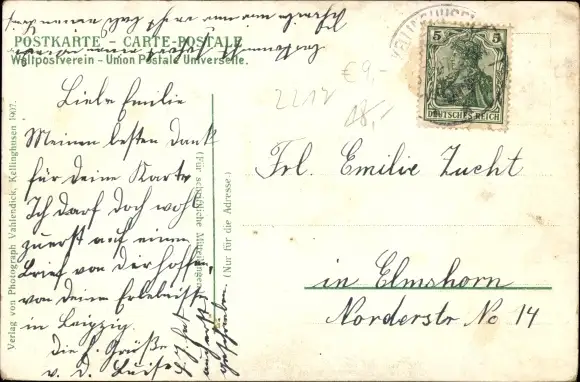 POSTKARTE – CARTE-POSTALE
Weltpostverein – Union Postale Universelle.
KELLINGHUSEN
5 5
DEUTSCHES REICH
€ 9,-
2212
18,-
Liebe Emilie
Meinen besten Dank
für deine Karte
Ich darf doch wohl
zuerst auf einen
Brief von dir hoffen,
von deinen Erlebnissen
in Leipzig.
Die h. Grüße
v. d. Luise
Frl. Emilie Zucht
in Elmshorn
Norderstr No 14
(Für schriftliche Mitteilungen.)
(Nur für die Adresse.)
Verlag von Photograph Vahlendick, Kellinghusen 1907.